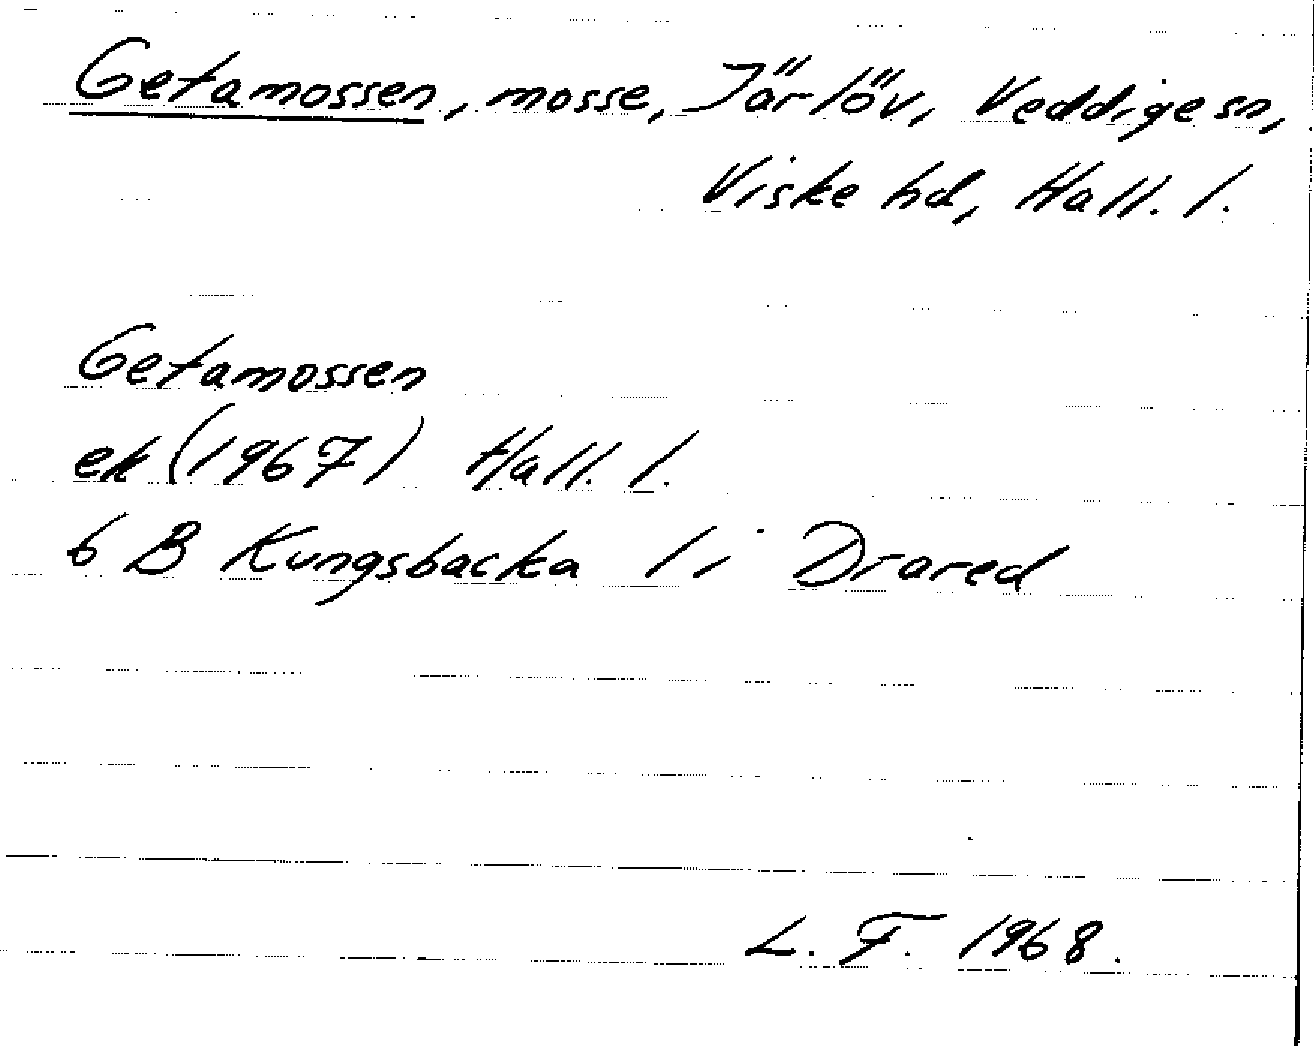 Getamossen, mosse, Järlöv, Veddige sn,
Viske hd, Hall. l.
Getamossen
ek (1967) Hall. l.
6 B Kungsbacka 1 i Drared
L. F. 1968.